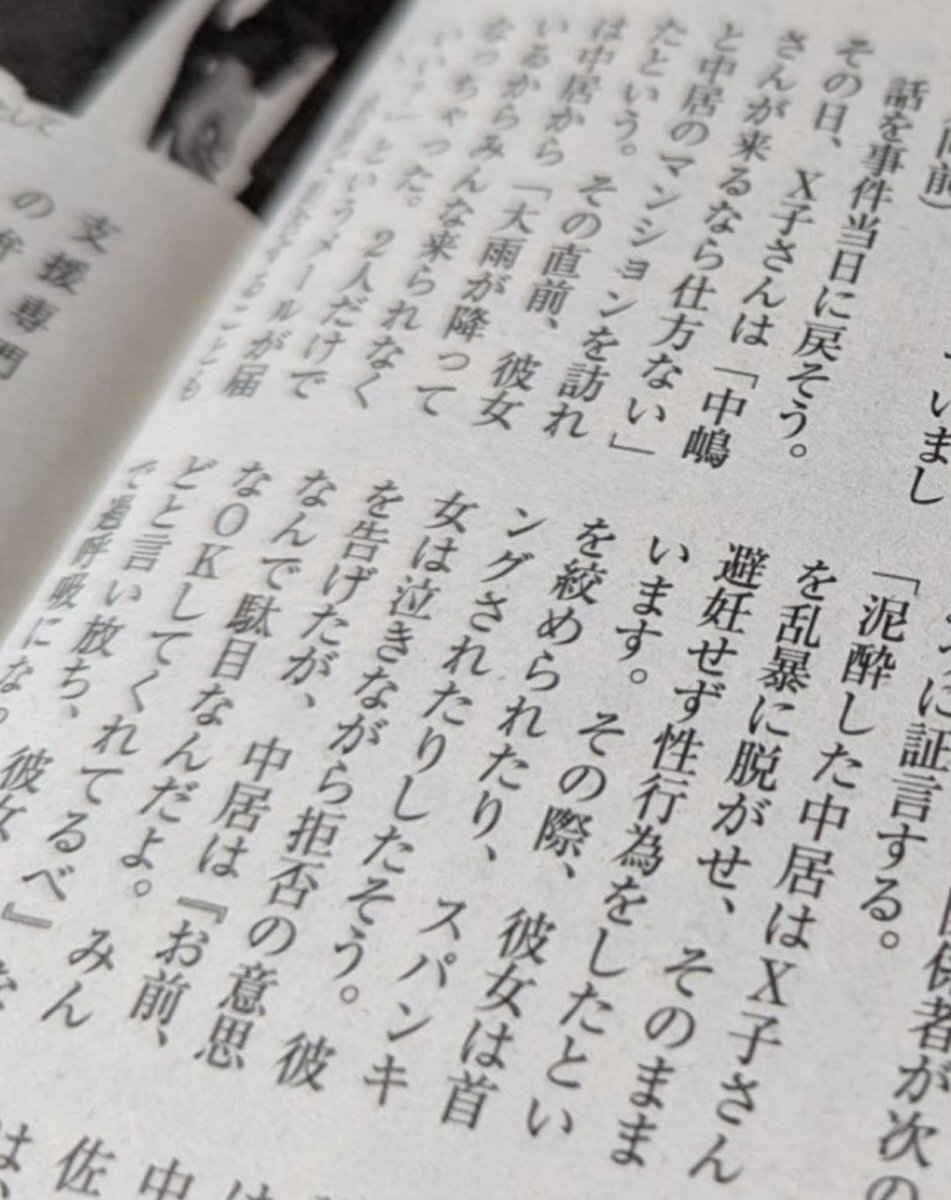 いまし
同前）
話を事件当日に戻そう。
その日、X子さんは「中嶋
さんが来るなら仕方ない」
と中居のマンションを訪れ
たという。その直前、彼女
は中居から「大雨が降って
いるからみんな来られなく
なっちゃった。2人だけで
いい？」というメールが届
ことも
係者が次の
に証言する。
「泥酔した中居はX子さん
を乱暴に脱がせ、そのまま
避妊せず性行為をしたとい
います。その際、彼女は首
を絞められたり、スパンキ
ングされたりしたそう。彼
女は泣きながら拒否の意思
を告げたが、中居は『お前、
なんで駄目なんだよ。みん
なOKしてくれてるべ』
どと言い放ち、彼女
で過呼吸にな
中
佐
は、
として
支援専門
の